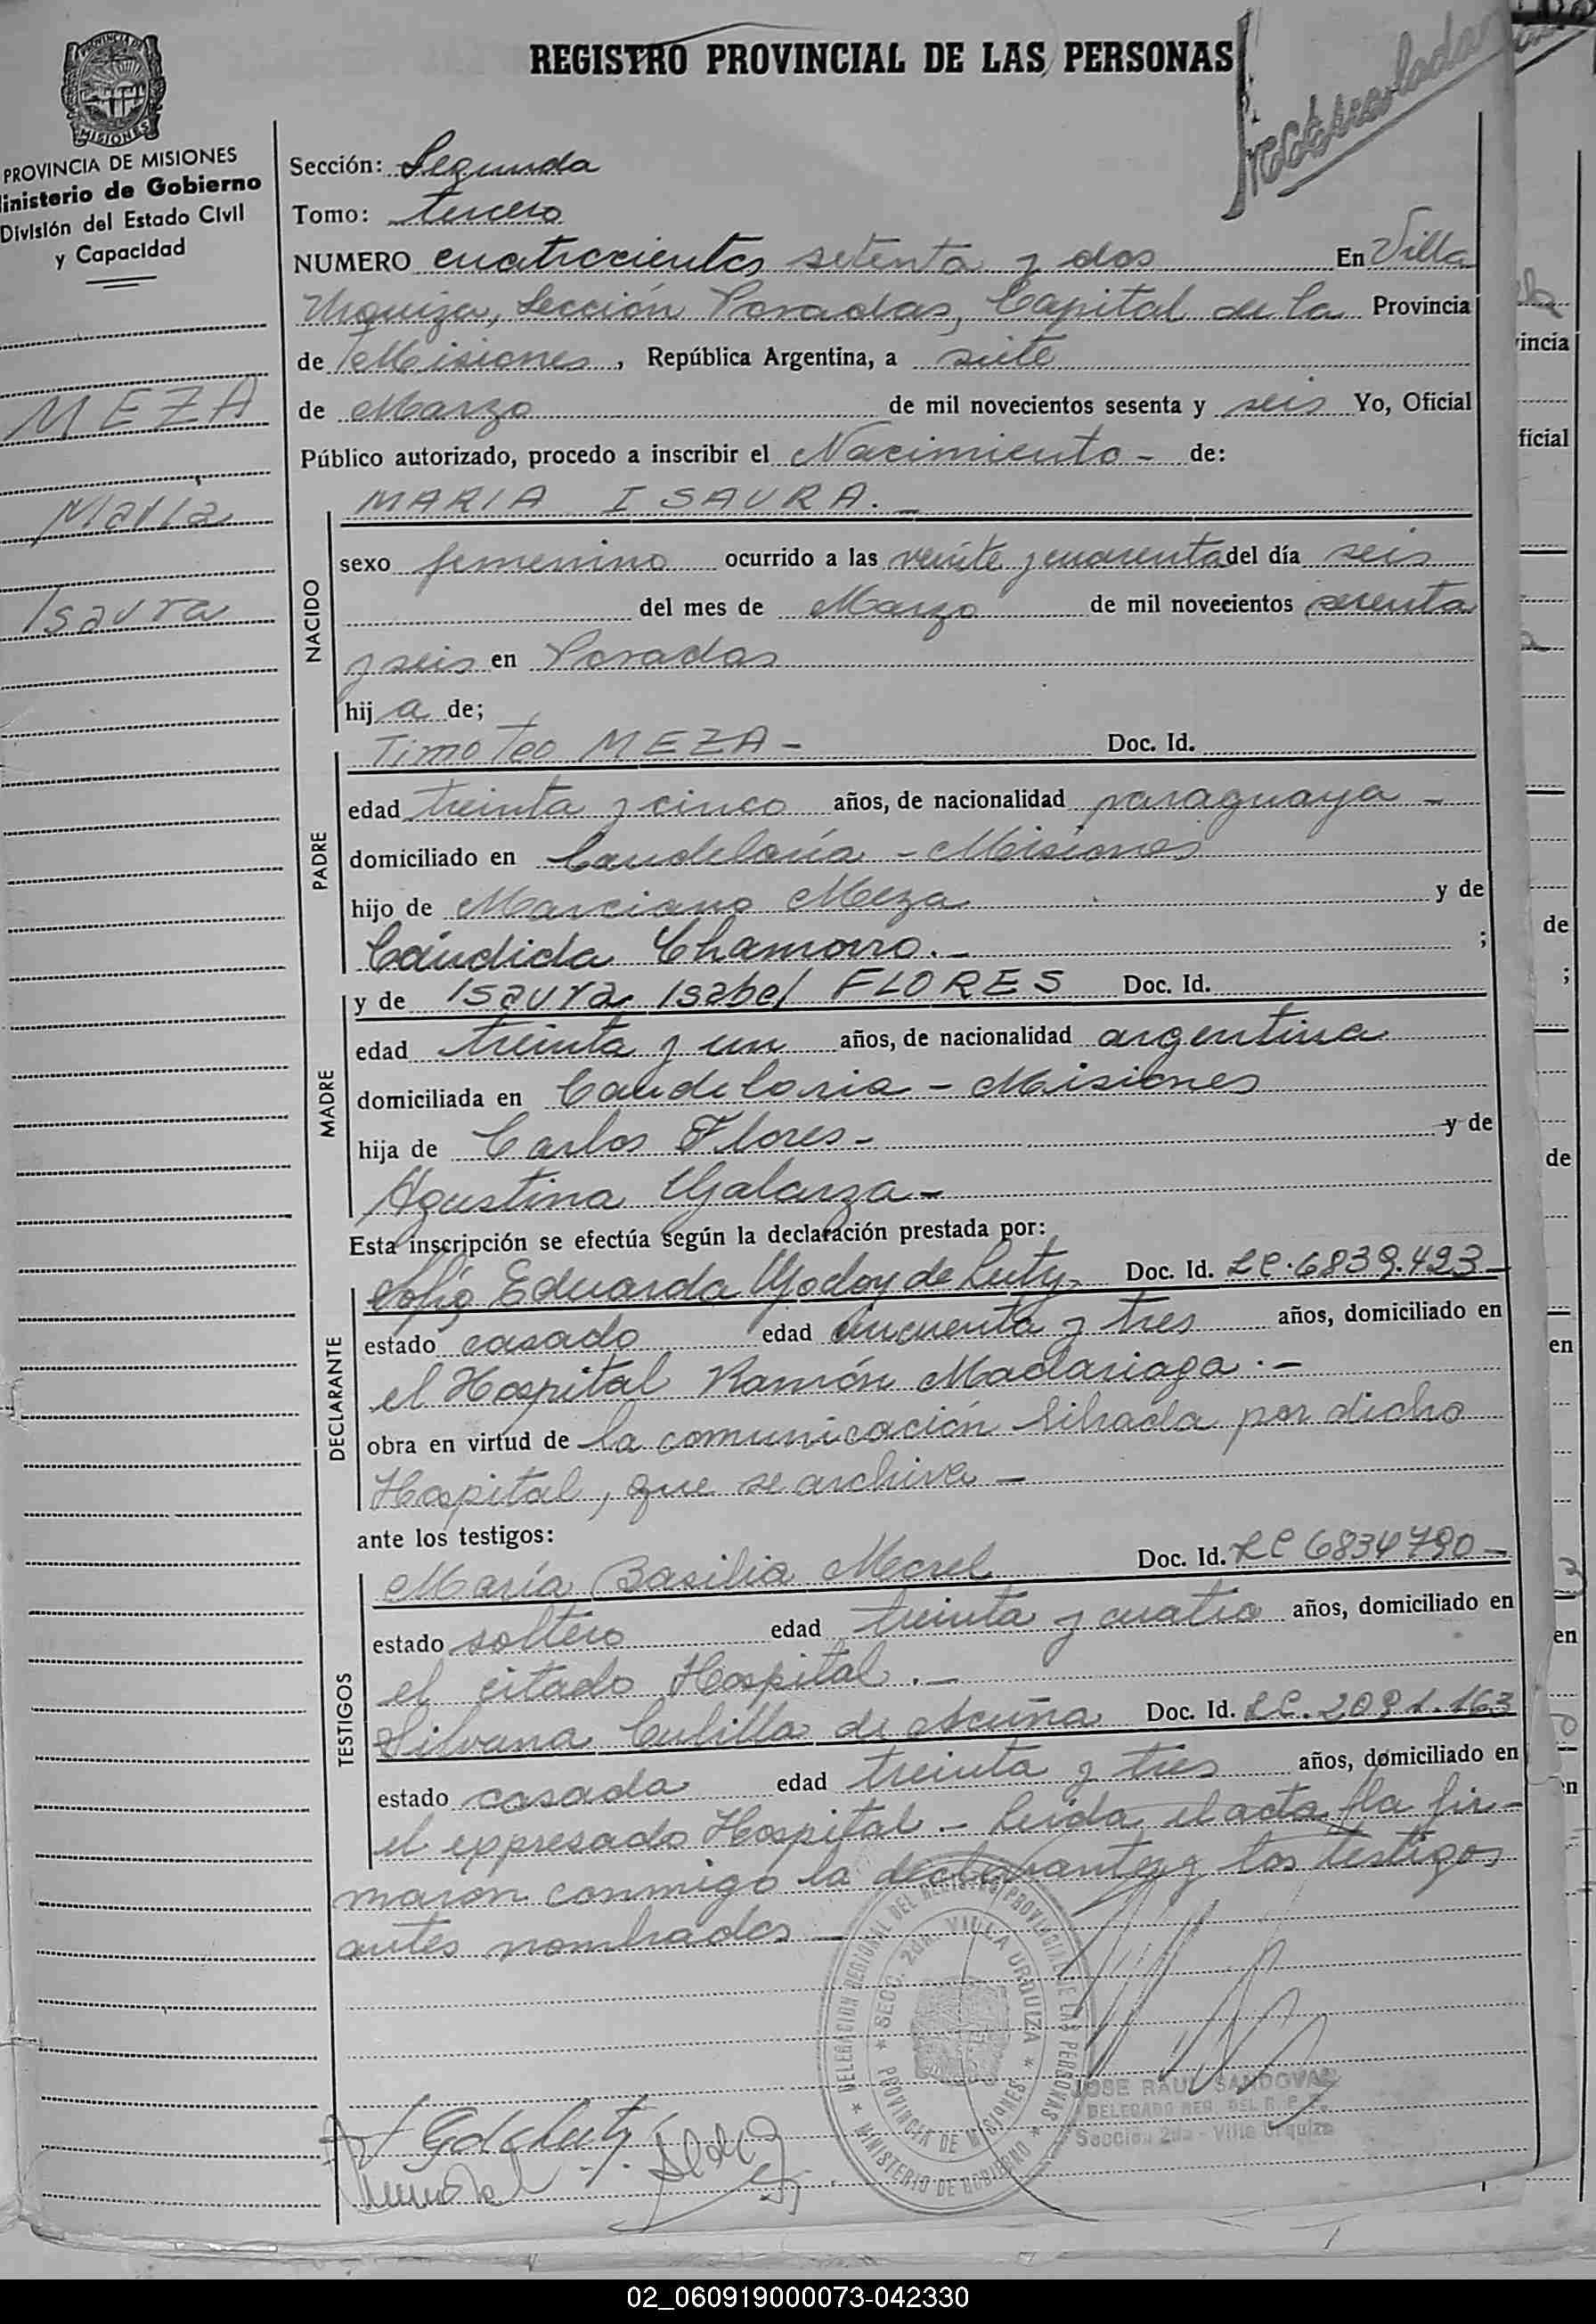 REGISTRO PROVINCIAL DE LAS PERSONAS
MISIONES
PROVINCIA DE MISIONES
inisterio de Gobierno
División del Estado Civil
y Capacidad
MEZA
María
Isaura
Sección: Segunda
Tomo: tercero
NUMERO cuatrocientos setenta y dos En Villa
Urquiza, Sección Posadas, Capital de la Provincia
de Misiones, República Argentina, a siete
de Marzo de mil novecientos sesenta y seis Yo, Oficial
Público autorizado, procedo a inscribir el Nacimiento - de:
MARIA ISAURA.-
NACIDO
sexo femenino ocurrido a las veinte y cuarenta del día seis
del mes de Marzo de mil novecientos sesenta
y seis en Posadas
hija de;
PADRE
Timoteo MEZA - Doc. Id.
edad treinta y cinco años, de nacionalidad paraguaya -
domiciliado en Candelaria - Misiones
hijo de Marciano Meza y de
Cándida Chamorro.- ;
MADRE
y de Isaura Isabel FLORES Doc. Id.
edad treinta y un años, de nacionalidad argentina
domiciliada en Candelaria - Misiones
hija de Carlos Flores - y de
Agustina Galarza -
Esta inscripción se efectúa según la declaración prestada por:
DECLARANTE
Eduarda Godoy de Luty Doc. Id. LC.6839.423-
estado casado edad cincuenta y tres años, domiciliado en
el Hospital Ramón Madariaga.-
obra en virtud de la comunicación librada por dicho
Hospital, que se archiva -
ante los testigos:
TESTIGOS
María Basilia Morel Doc. Id. LC 6834790-
estado soltero edad treinta y cuatro años, domiciliado en
el citado Hospital.-
Silvana Cubilla de Acuña Doc. Id. LC.2091.163
estado casada edad treinta y tres años, domiciliado en
el expresado Hospital - Leida el acta la fir-
maron conmigo la declarante y los testigos
antes nombrados -
DELEGACION REGIONAL DEL REGISTRO PROVINCIAL DE LAS PERSONAS
SECC. 2da. VILLA URQUIZA
PROVINCIA DE MISIONES
MINISTERIO DE GOBIERNO
JOSE RAUL SANDOVAL
DELEGADO REG. DEL R. P. P.
Sección 2da - Villa Urquiza
02_060919000073-042330